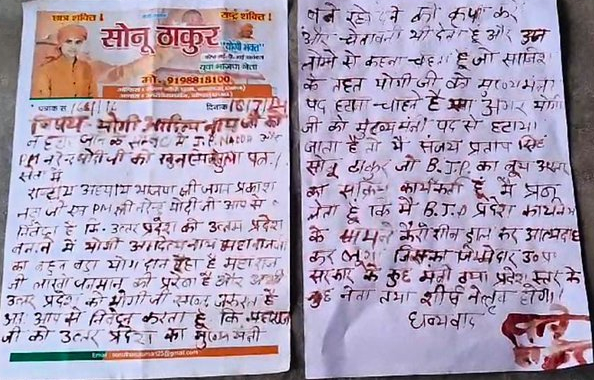 छात्र शक्ति !
राष्ट्र शक्ति !
सोनू ठाकुर
"योगी भक्त"
युवा भाजपा नेता
मो.- 9198818100
पत्रांक सं
दिनांक
विषय- योगी आदित्यनाथ जी को
न हटाए जाने के सम्बन्ध में J.P. NADDA और
PM नरेन्द्र मोदी जी को खून से खुला पत्र।
सेवा में
राष्ट्रीय अध्यक्ष भाजपा श्री जगत प्रकाश
नड्डा जी एवं PM श्री नरेन्द्र मोदी जी आप से
निवेदन है कि उत्तर प्रदेश को उत्तम प्रदेश
बनाने में योगी आदित्यनाथ महाराज जी
का बहुत बड़ा योगदान रहा है महाराज
जी लाखों की प्रेरणा है और
उत्तर प्रदेश को योगी जी जरूरत है
आप से निवेदन करता हूँ कि महाराज
जी को उत्तर प्रदेश का मुख्य मंत्री
बने रहने की कृपा करें
और चेतावनी भी देता हूँ और उन
लोगों से कहना चहता हूँ जो साजिश
के तहत योगी जी को मुख्यमंत्री
पद हटाना चाहते है अगर योगी
जी को मुख्यमंत्री पद से हटाया
जाता है तो मैं संजय प्रताप सिंह
सोनू ठाकुर जो B.J.P. का बूथ अध्यक्ष
का सक्रिय कार्यकर्ता हूँ मैं प्रण
लेता हूँ कि मैं B.J.P प्रदेश कार्यालय
के सामने डाल कर आत्मदाह
कर लूंगा जिसका जिम्मेदार उ०प्र०
सरकार के कुछ मंत्री तथा प्रदेश स्तर के
कुछ नेता तथा शीर्ष नेतृत्व होगी।
धन्यवाद